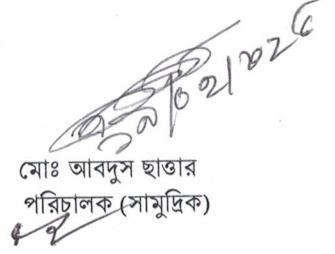 মোঃ আবদুস ছাত্তার
পরিচালক (সামুদ্রিক)